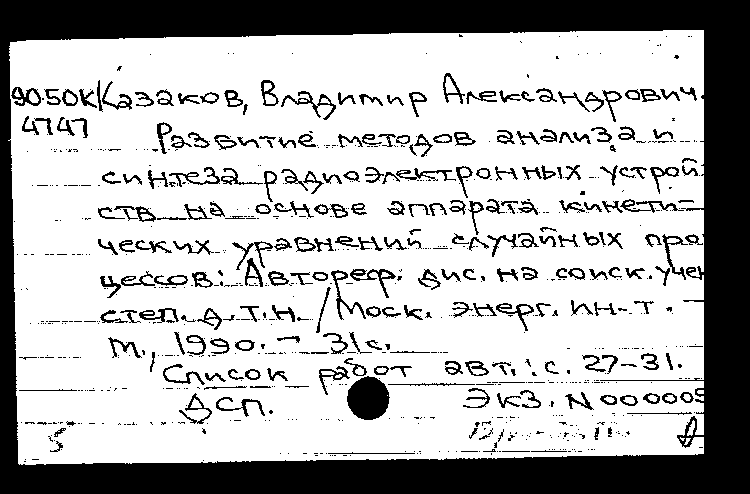 9050К Казаков, Владимир Александрович.
4747 Развитие методов анализа и
синтеза радиоэлектронных устрой
ств на основе аппарата кинети-
ческих уравнений случайных про
цессов: Автореф. дис. на соиск. учен
степ. д.т.н. /Моск. энерг. ин-т. -
М., 1990. - 31с.
Список работ авт.: с. 27-31.
ДСП. Экз. N 000005
5